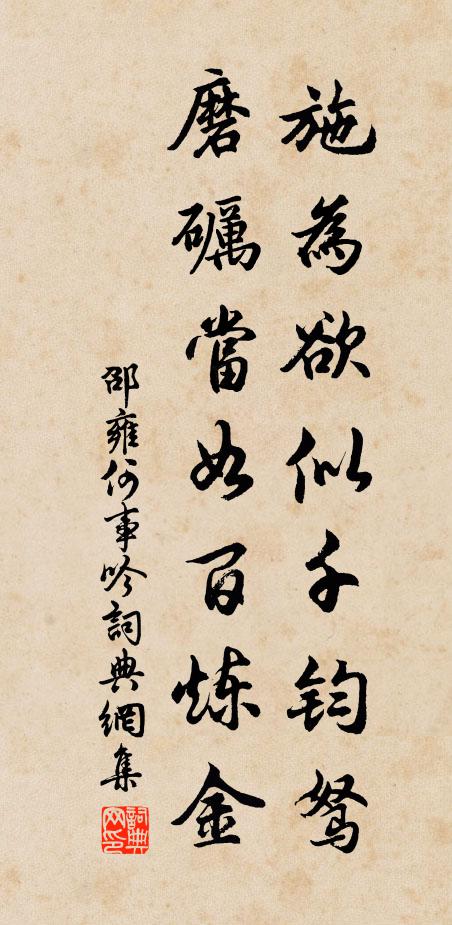 施為欲似千鈞驽
磨礪當如百炼金
邵雍何事吟詞典網集
詞典网印